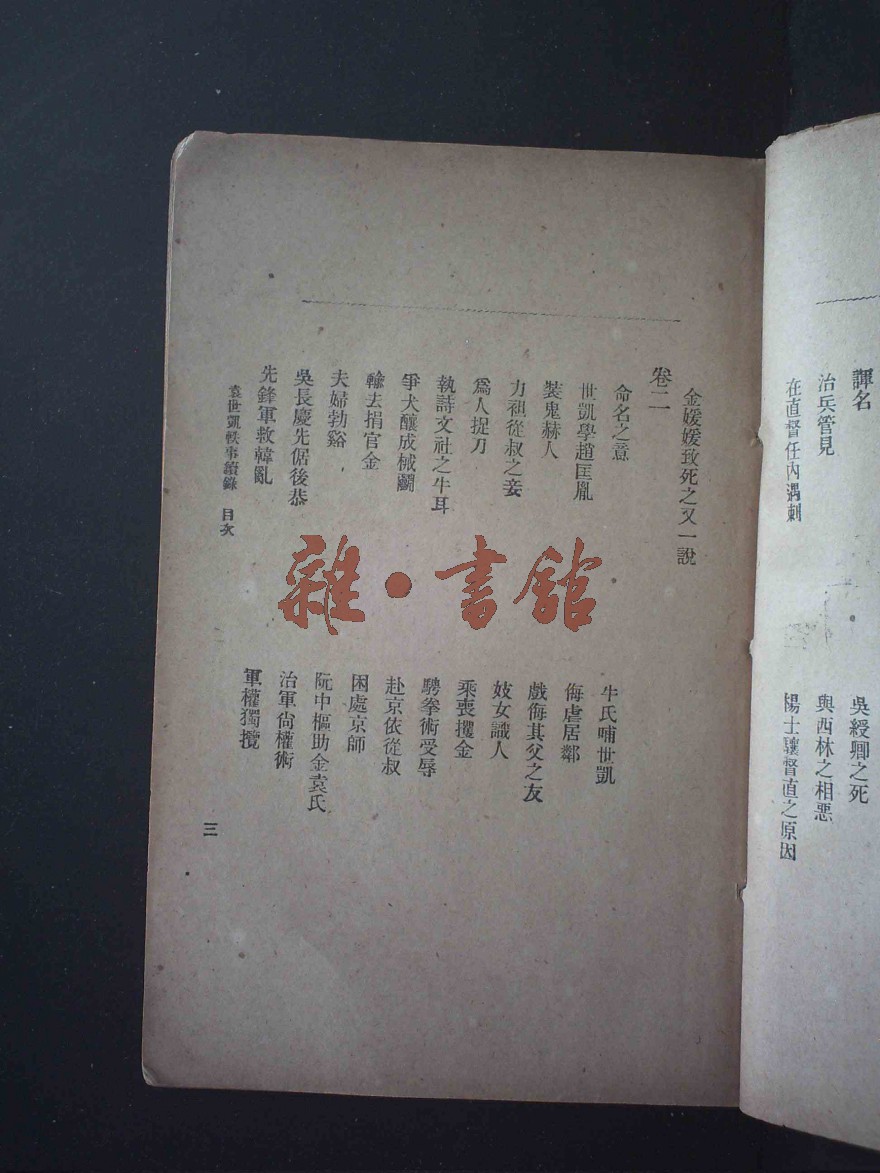 諢名
吳綬卿之死
治兵管見
與西林之相惡
在直督任內遇刺
楊士驤督直之原因
金媛媛致死之又一說
卷二
命名之意
牛氏哺世凱
世凱學趙匡胤
侮虐居鄰
裝鬼赫人
戲侮其父之友
力袒從叔之妾
妓女識人
爲人捉刀
乘喪攫金
執詩文社之牛耳
騁拳術受辱
爭犬釀成械鬭
赴京依從叔
輸去捐官金
困處京師
夫婦勃谿
阮中樞助金袁氏
吳長慶先倨後恭
治軍尙權術
先鋒軍救韓亂
軍權獨攬
袁世凱軼事續錄 目次
三
雜·書館